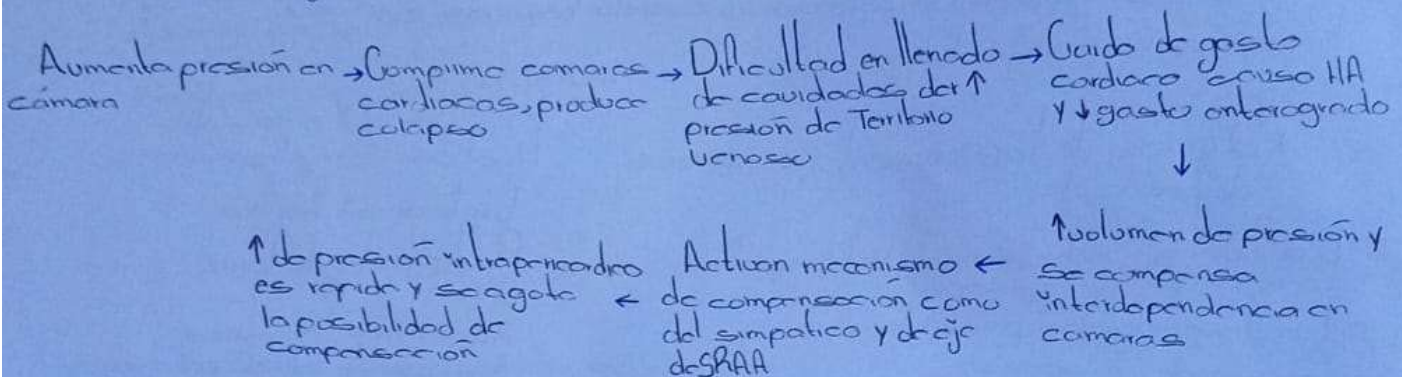 Aumenta presión en →
cámara
Comprime camaras →
cardiacas, produce
colapso
Dificultad en llenado →
de cavidades der ↑
presión de Territorio
venoso
Caida de gasto
cardiaco causo HA
y ↓ gasto anterogrado
↓
↑ volumen de presión y
se compensa
interdependencia en
camaras
←
Activan mecanismo
de compensación como
del simpatico y de eje
de SRAA
←
↑ de presión intrapericardico
es rapida y se agota
la posibilidad de
compensación